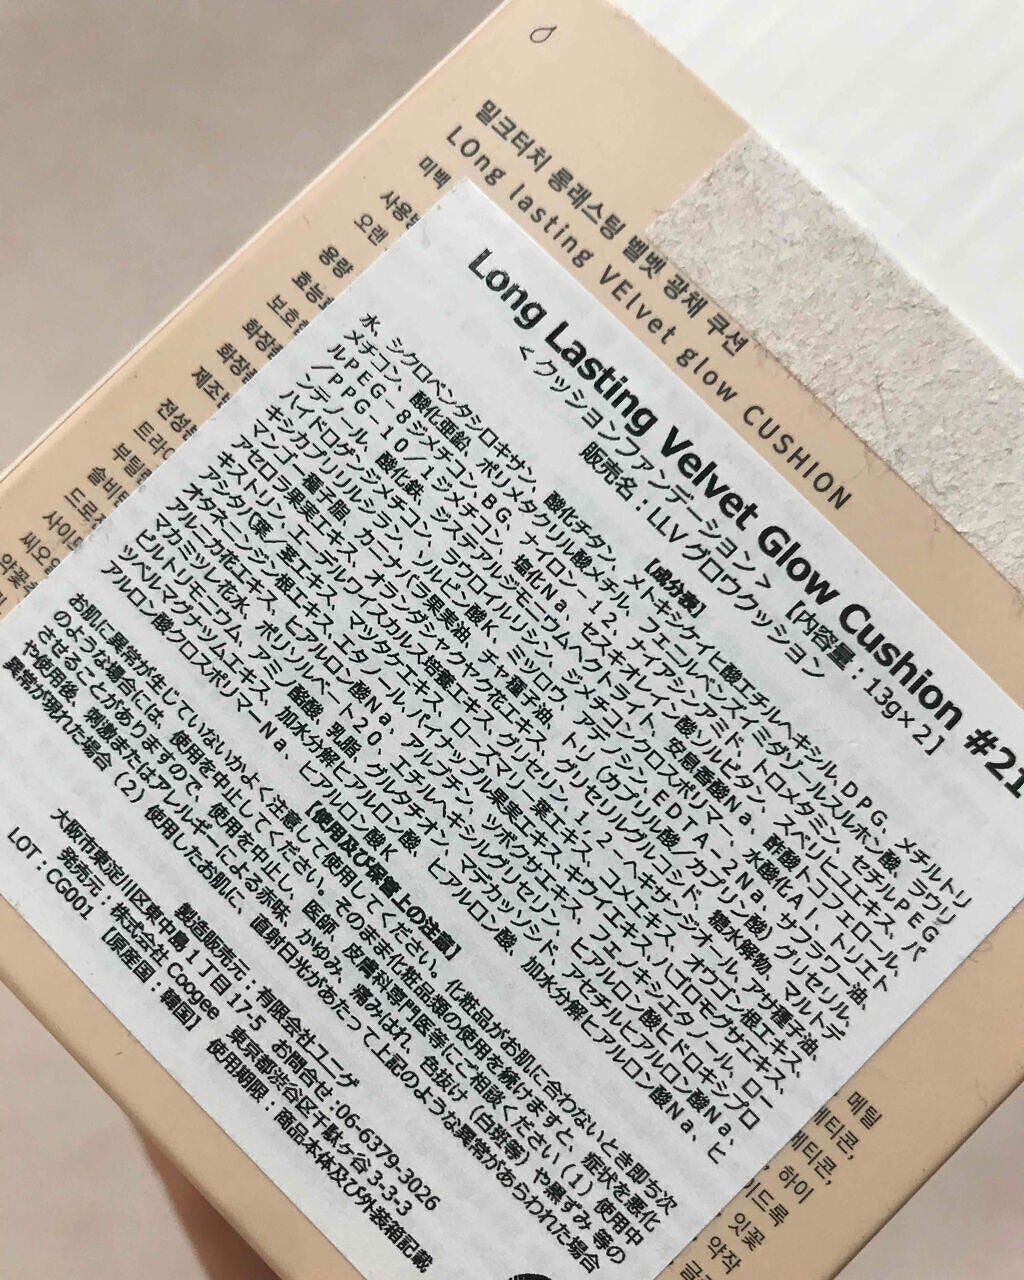 밀크터치 롱래스팅 벨벳 광채 쿠션
LOng lasting VElvet glow CUSHION
미백
사용
오랜
용량
효능
보호
화장
화장
제조
전성
트라이
부틸
솔비
디로
사이
씨오
잇꽃
Long Lasting Velvet Glow Cushion #21
<クッションファンデーション> 【内容量:13g×2】
販売名:LLVグロウクッション
【成分表】
水、シクロペンタシロキサン、酸化チタン、メトキシケイヒ酸エチルヘキシル、DPG、メチルトリ
メチコン、酸化亜鉛、ポリメタクリル酸メチル、フェニルベンズイミダゾールスルホン酸、ラウリ
ルPEG-8ジメチコン、BG、ナイロン-12、ナイアシンアミド、トロメタミン、セチルPEG
/PPG-10/1ジメチコン、塩化Na、セスキオレイン酸ソルビタン、スベリヒユエキス、パ
ンテノール、酸化鉄、ジステアルジモニウムヘクトライト、安息香酸Na、酢酸トコフェロール、
ハイドロゲンジメチコン、ラウロイルリシン、ジメチコンクロスポリマー、水酸化Al、トリエト
キシカプリリルシラン、ソルビン酸K、ミツロウ、アデノシン、EDTA-2Na、サフラワー油、
マンゴー種子脂、カーナバラ果実油、チャ種子油、トリ(カプリル酸/カプリン酸)グリセリル、
アセロラ果実エキス、オランダシャクヤク花エキス、グリセリルグルコシド、糖水解物、マルトデ
キストリン、エーデルワイスカルス培養エキス、グリセリン、1,2-ヘキサンジオール、アサ種子油、
アシタバ葉/茎エキス、マツタケエキス、ローズマリー葉エキス、コメエキス、オウゴン根エキス、
オタネニンジン根エキス、エタノール、パイナップル果実エキス、キウイエキス、ハゴロモグサエキス、
アルニカ花エキス、ヒアルロン酸Na、アルブチン、ツボクサエキス、フェノキシエタノール、ロー
マカミツレ花水、ポリソルベート20、エチルヘキシルグリセリン、ヒアルロン酸ヒドロキシプロ
ピルトリモニウム、アミノ酪酸、乳脂、グルタチオン、マデカッソシド、アセチルヒアルロン酸Na、
ツベルマグナツムエキス、加水分解ヒアルロン酸、ヒアルロン酸、加水分解ヒアルロン酸Na、ヒ
アルロン酸クロスポリマーNa、ヒアルロン酸K
【使用及び保管上の注意】
お肌に異常が生じていないかよく注意して使用してください。化粧品がお肌に合わないとき即ち次
のような場合には、使用を中止してください。そのまま化粧品類の使用を続けますと、症状を悪化
させることがありますので、使用を中止し、医師、皮膚科専門医等にご相談ください(1)使用中
や使用後、刺激またはアレルギーによる赤味、かゆみ、痛みはれ、色抜け(白斑等)や黒ずみ等の
異常が現れた場合(2)使用したお肌に、直射日光があたって上記のような異常があらわれた場合
製造販売元:有限会社ユニゲ
大阪市東淀川区東中島1丁目17-5 お問合せ:06-6379-3026
発売元:株式会社 Coogee 東京都渋谷区千駄ケ谷3-3-3
LOT:CG001 【原産国:韓国】 使用期限:商品本体及び外装箱記載
메틸
메티콘,
메티콘,
하이
이드록
잇꽃
약작